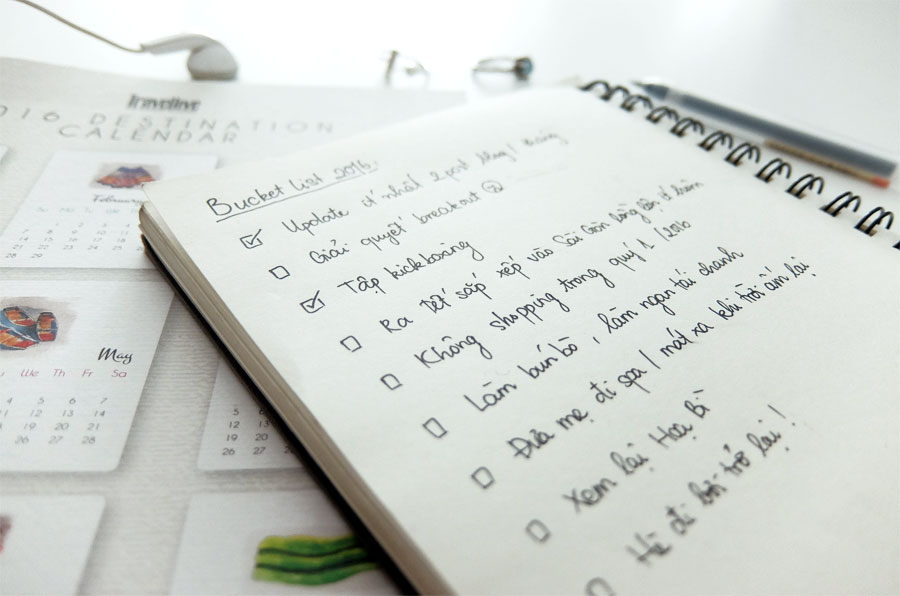 Travellive
2016 DESTINATION
CALENDAR
February
May
We Th Fr Sa
4 5 6 7
11 12 13 14
19 20 21
26 27 28
5 6
12 13
19 20
26 27
Bucket List 2016.
Update ít nhất 2 post blog / tháng
Giải quyết breakout
Tập kickboxing
Ra Tết sắp xếp vào Sài Gòn
Không shopping trong quý 1 / 2016
Làm bún bò, làm ngan tái chanh
Đưa mẹ đi spa / mát xa khi trời ấm lại
Xem lại Hoạ Bì
Hè đi bơi trở lại!